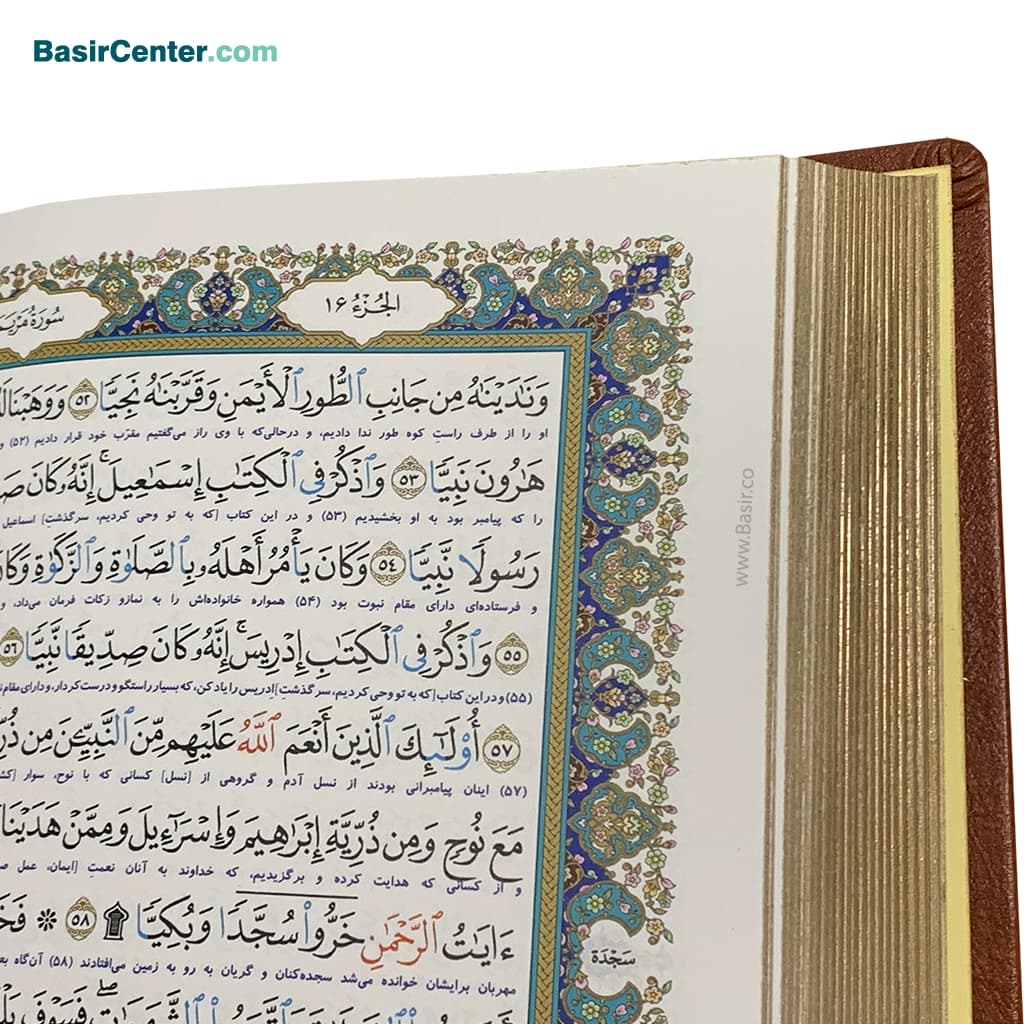 BasirCenter.com
الجُزْءُ ١٦
سُورَةُ مَرْيَم
وَنَـٰدَيْنَـٰهُ مِن جَانِبِ ٱلطُّورِ ٱلْأَيْمَنِ وَقَرَّبْنَـٰهُ نَجِيًّا ٥٢ وَوَهَبْنَا
او را از طرف راستِ کوه طور ندا دادیم، و درحالی‌که با وی راز می‌گفتیم مقرّب خود قرار دادیم (۵۲) و
هَـٰرُونَ نَبِيًّا ٥٣ وَٱذْكُرْ فِى ٱلْكِتَـٰبِ إِسْمَـٰعِيلَ ۚ إِنَّهُۥ كَانَ
را که پیامبر بود به او بخشیدیم (۵۳) و در این کتاب [که به تو وحی کردیم، سرگذشتِ] اسماعیل
رَسُولًا نَّبِيًّا ٥٤ وَكَانَ يَأْمُرُ أَهْلَهُۥ بِٱلصَّلَوٰةِ وَٱلزَّكَوٰةِ وَكَانَ
و فرستاده‌ای دارای مقام نبوت بود (۵۴) همواره خانواده‌اش را به نماز و زکات فرمان می‌داد، و
٥٥ وَٱذْكُرْ فِى ٱلْكِتَـٰبِ إِدْرِيسَ ۚ إِنَّهُۥ كَانَ صِدِّيقًا نَّبِيًّا ٥٦
(۵۵) و در این کتاب [که به تو وحی کردیم، سرگذشتِ] اِدریس را یاد کن، که بسیار راستگو و درست کردار، و دارای مقام
٥٧ أُو۟لَـٰٓئِكَ ٱلَّذِينَ أَنْعَمَ ٱللَّهُ عَلَيْهِم مِّنَ ٱلنَّبِيِّـۧنَ مِن
(۵۷) اینان پیامبرانی بودند از نسل آدم و گروهی از [نسل] کسانی که با نوح، سوار
مَعَ نُوحٍ وَمِن ذُرِّيَّةِ إِبْرَٰهِيمَ وَإِسْرَٰٓءِيلَ وَمِمَّنْ هَدَيْنَا
و از کسانی که هدایت کرده و برگزیدیم، که خداوند به آنان نعمتِ [ایمان، عمل
ءَايَـٰتُ ٱلرَّحْمَـٰنِ خَرُّوا۟ سُجَّدًا وَبُكِيًّا ۩ ٥٨ ❊
مهربان برایشان خوانده می‌شد سجده‌کنان و گریان به رو به زمین می‌افتادند (۵۸) آن‌گاه
سَجْدَة
www.Basir.co